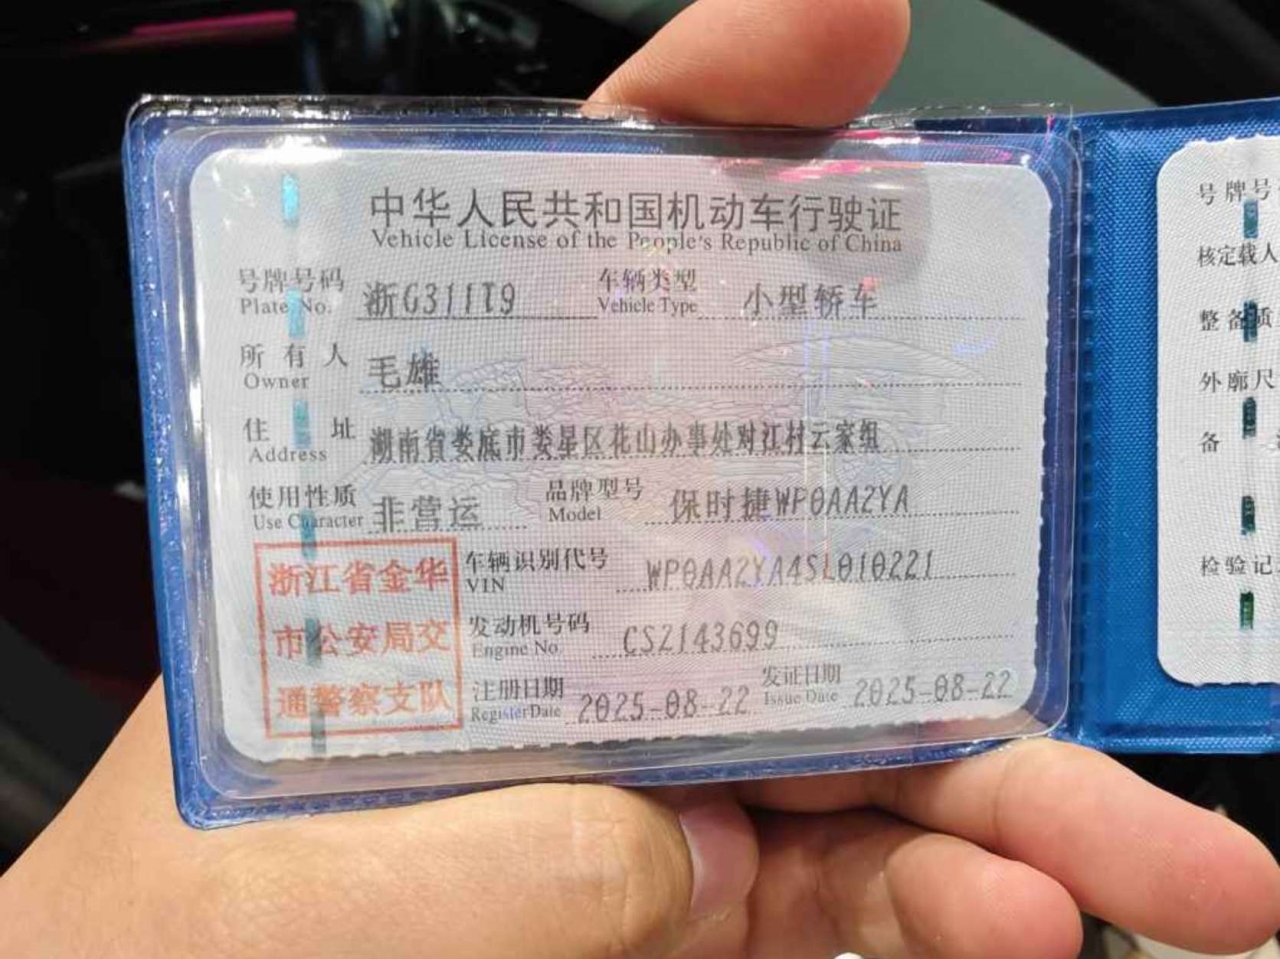 中华人民共和国机动车行驶证
Vehicle License of the People's Republic of China
号牌号码 浙G311T9 车辆类型 小型轿车
Plate No. Vehicle Type
所有人 毛雄
Owner
住址 湖南省娄底市娄星区花山办事处对江村云家组
Address
使用性质 非营运 品牌型号 保时捷WP0AA2YA
Use Character Model
浙江省金华
市公安局交
通警察支队
车辆识别代号 WP0AA2YA4SL010221
VIN
发动机号码 CSZ143699
Engine No.
注册日期 2025-08-22 发证日期 2025-08-22
Register Date Issue Date
号牌号
核定载人
整备质
外廓尺
备
检验记